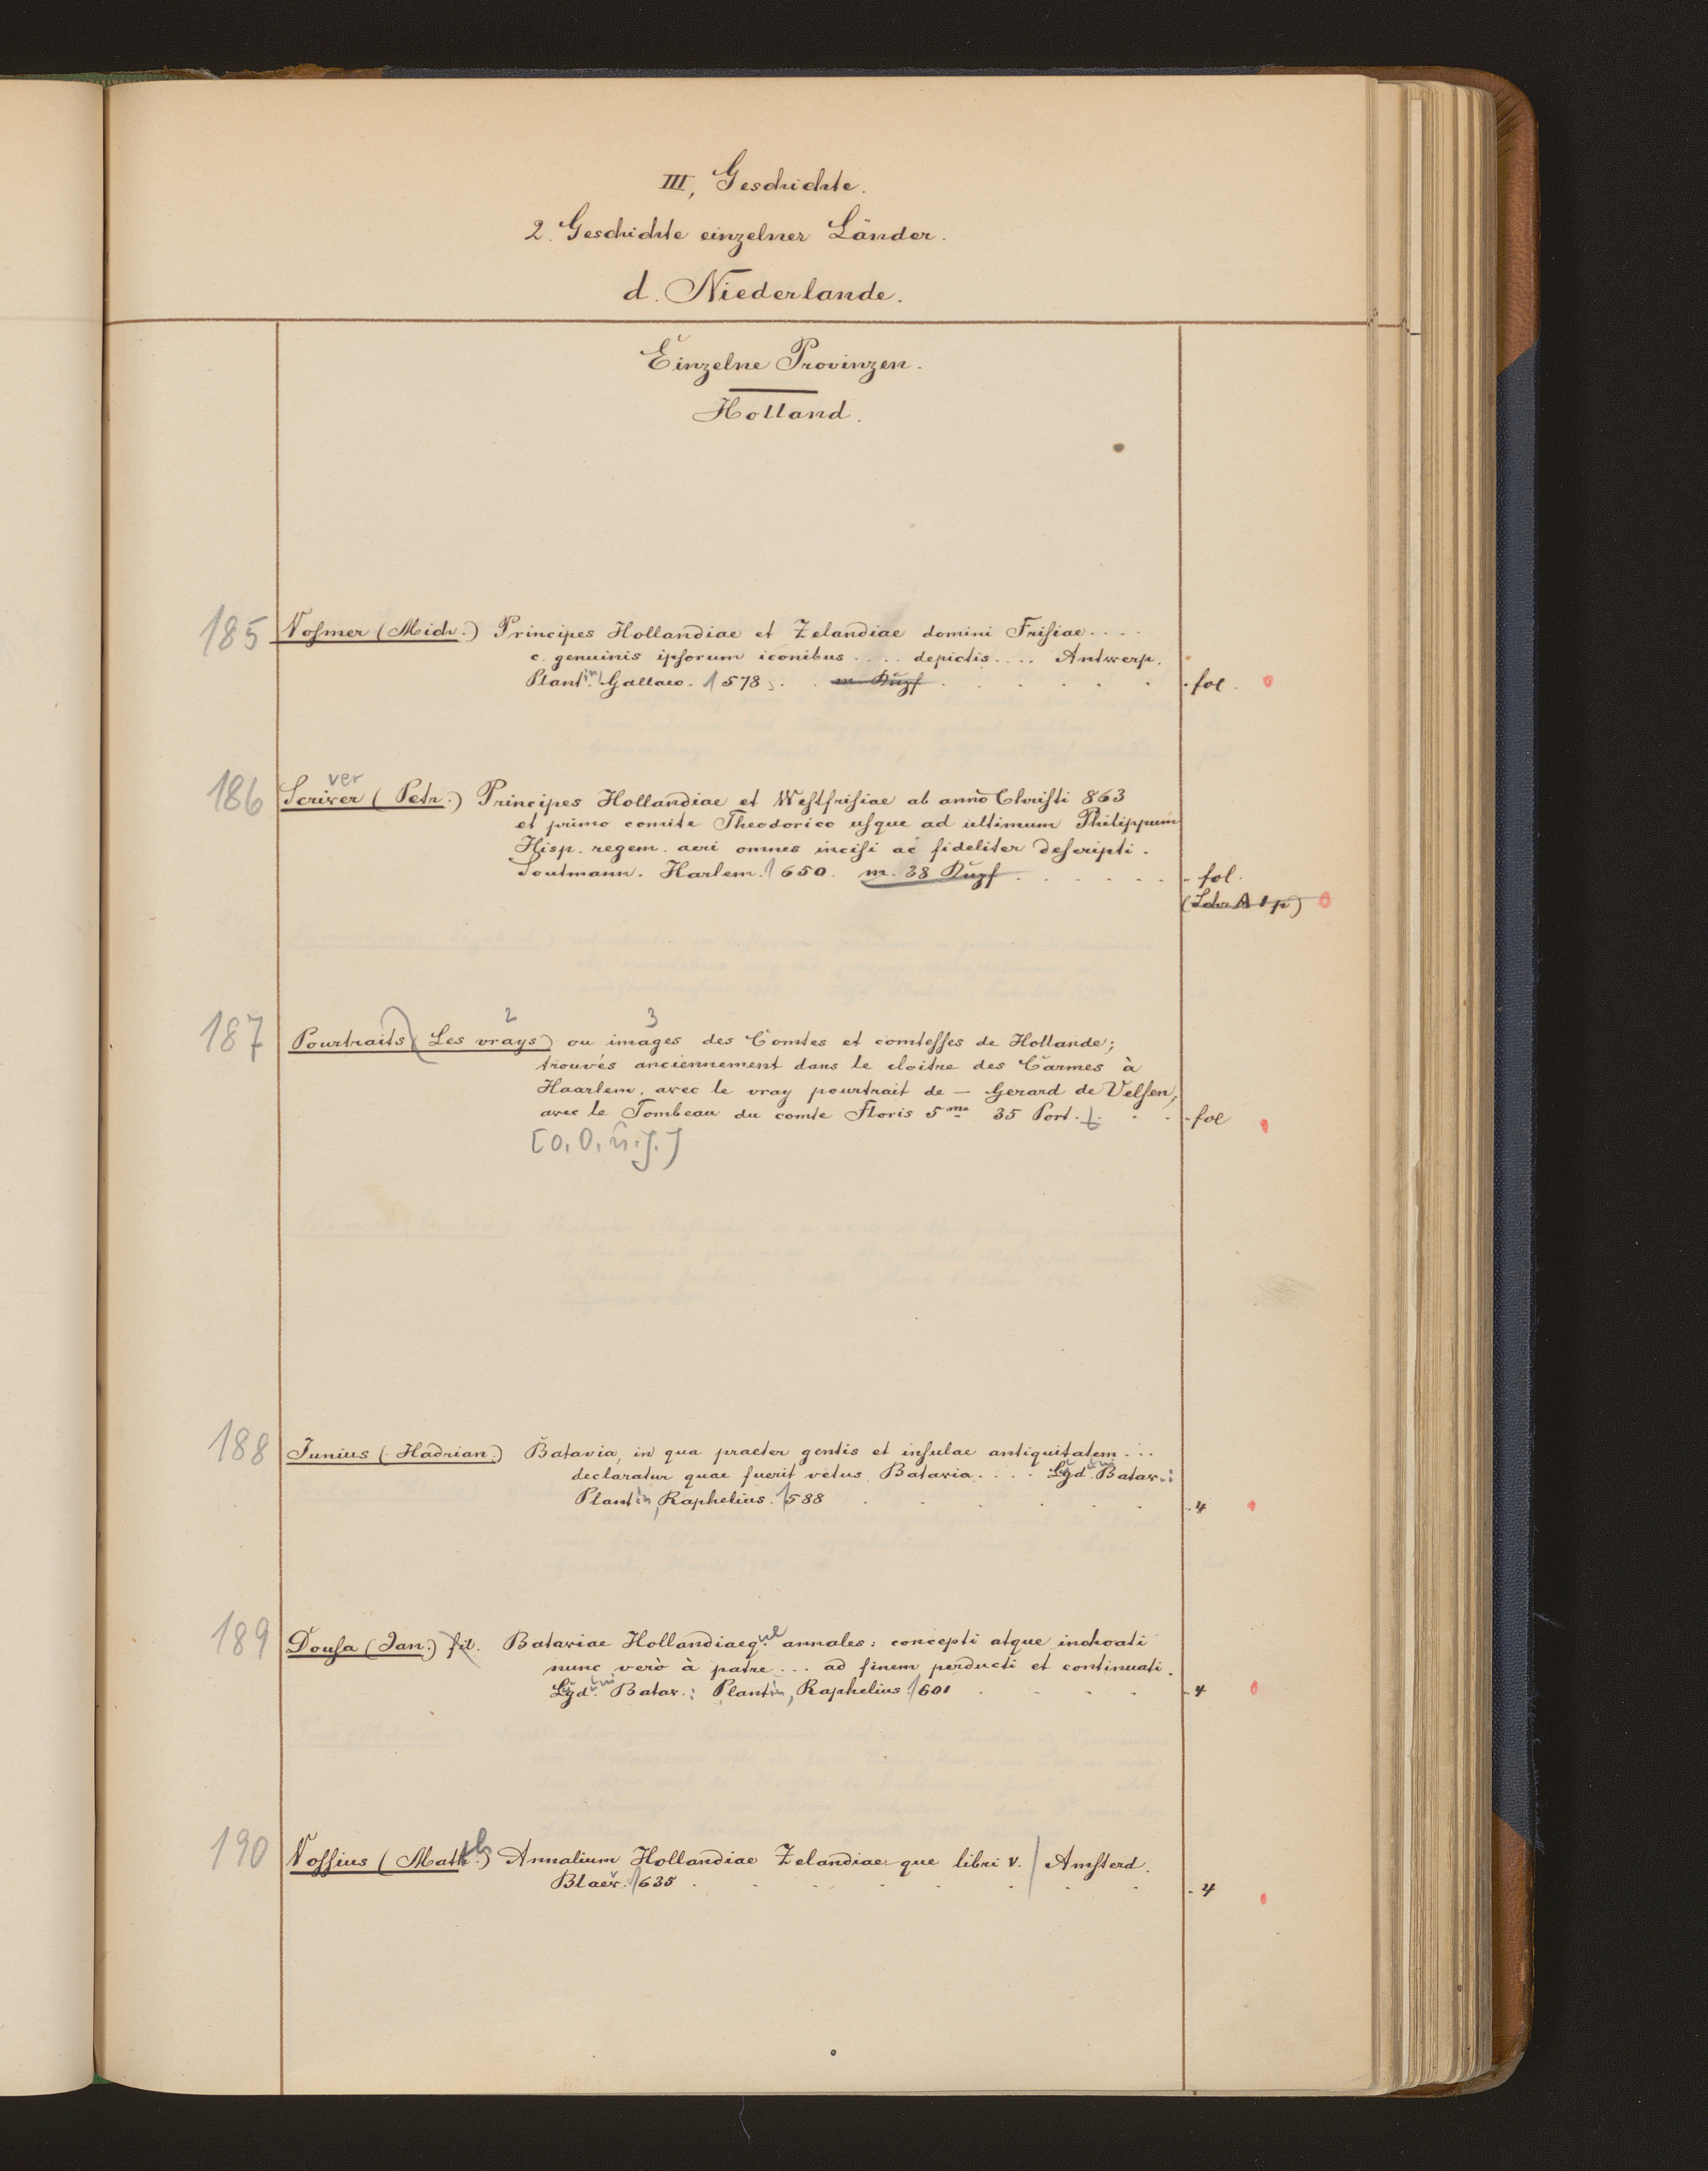 III, Geschichte.
2. Geschichte einzelner Länder.
d. Niederlande.
Einzelne Provinzen.
Holland.
185 Voſmer (Mich.) Principes Hollandiae et Zelandiae domini Friſiae....
c. genuinis ipſorum iconibus .... depictis .... Antwerp.
Plantin. Gallaeo. 1578. m Kupf fol.
186 Scriver (Petr.) Principes Hollandiae et Weſtfriſiae ab anno Chriſti 863
ver
et primo comite Theodorico uſque ad ultimum Philippum
Hisp. regem. aeri omnes inciſi ac fideliter deſcripti.
Soutmann. Harlem. 1650. m. 38 Kupf fol.
187 Pourtraits (Les vrays) ou images des Comtes et comteſſes de Hollande;
2 3
trouvés anciennement dans le cloitre des Carmes à
Haarlem. avec le vray pourtrait de — Gerard de Velſen,
avec le Tombeau du comte Floris 5me 35 Port. fol
[o. O. ŭ. J.]
188 Junius (Hadrian.) Batavia, in qua praeter gentis et inſulae antiquitatem ...
declaratur quae fuerit vetus Batavia .... Lgd. Batav.:
Plantin, Raphelius. 1588 4
189 Douſa (Jan.) fil. Bataviae Hollandiaeque annales: concepti atque inchoati
nunc verò à patre ... ad finem perducti et continuati.
Lgd. Batav.: Plantin, Raphelius. 1601 4
190 Voſſius (Matth.) Annalium Hollandiae Zelandiae que libri V. Amſterd.
Blaeŭ. 1635 4